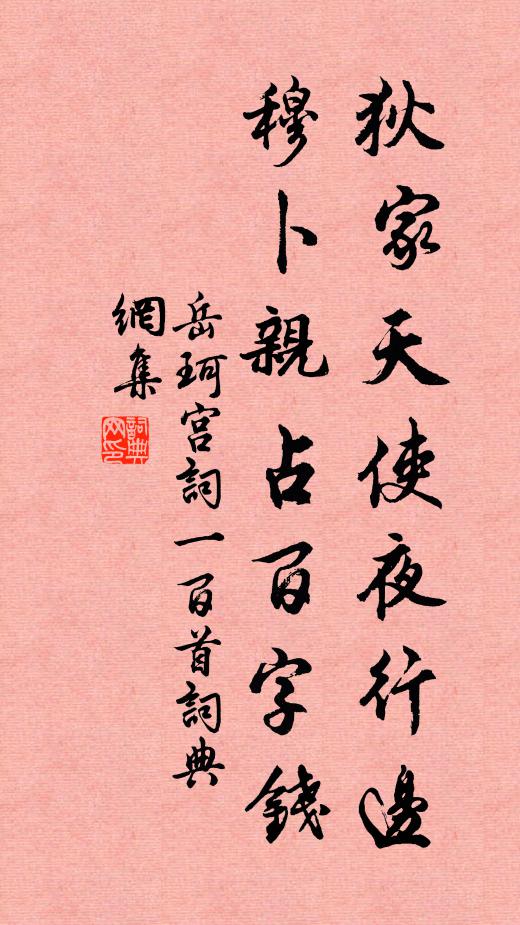 狄家天使夜行邊
穆卜親占百字錢
岳珂宫詞一百首詞典
網集
詞典
网印